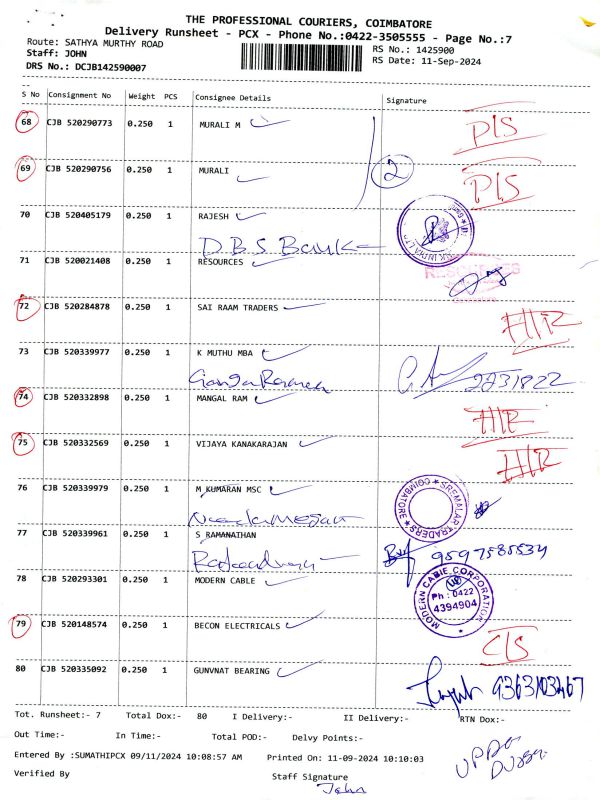 THE PROFESSIONAL COURIERS, COIMBATORE
Delivery Runsheet - PCX - Phone No.:0422-3505555 - Page No.:7
Route: SATHYA MURTHY ROAD
RS No.: 1425900
Staff: JOHN
RS Date: 11-Sep-2024
DRS No.: DCJB142590007
S No Consignment No Weight PCS Consignee Details Signature
68 CJB 520290773 0.250 1 MURALI M
69 CJB 520290756 0.250 1 MURALI
2
70 CJB 520405179 0.250 1 RAJESH
DBS Bank
71 CJB 520021408 0.250 1 RESOURCES
72 CJB 520284878 0.250 1 SAI RAAM TRADERS
73 CJB 520339977 0.250 1 K MUTHU MBA
74 CJB 520332898 0.250 1 MANGAL RAM
75 CJB 520332569 0.250 1 VIJAYA KANAKARAJAN
76 CJB 520339979 0.250 1 M KUMARAN MSC
SREMALAR TRADERS COIMBATORE
77 CJB 520339961 0.250 1 S RAMANATHAN
9597585534
78 CJB 520293301 0.250 1 MODERN CABLE
MODERN CABLE CORPORATION
Ph : 0422
4394904
79 CJB 520148574 0.250 1 BECON ELECTRICALS
80 CJB 520335092 0.250 1 GUNVNAT BEARING
Tot. Runsheet:- 7 Total Dox:- 80 I Delivery:- II Delivery:- RTN Dox:-
Out Time:- In Time:- Total POD:- Delvy Points:-
Entered By :SUMATHIPCX 09/11/2024 10:08:57 AM Printed On: 11-09-2024 10:10:03
Verified By Staff Signature
John